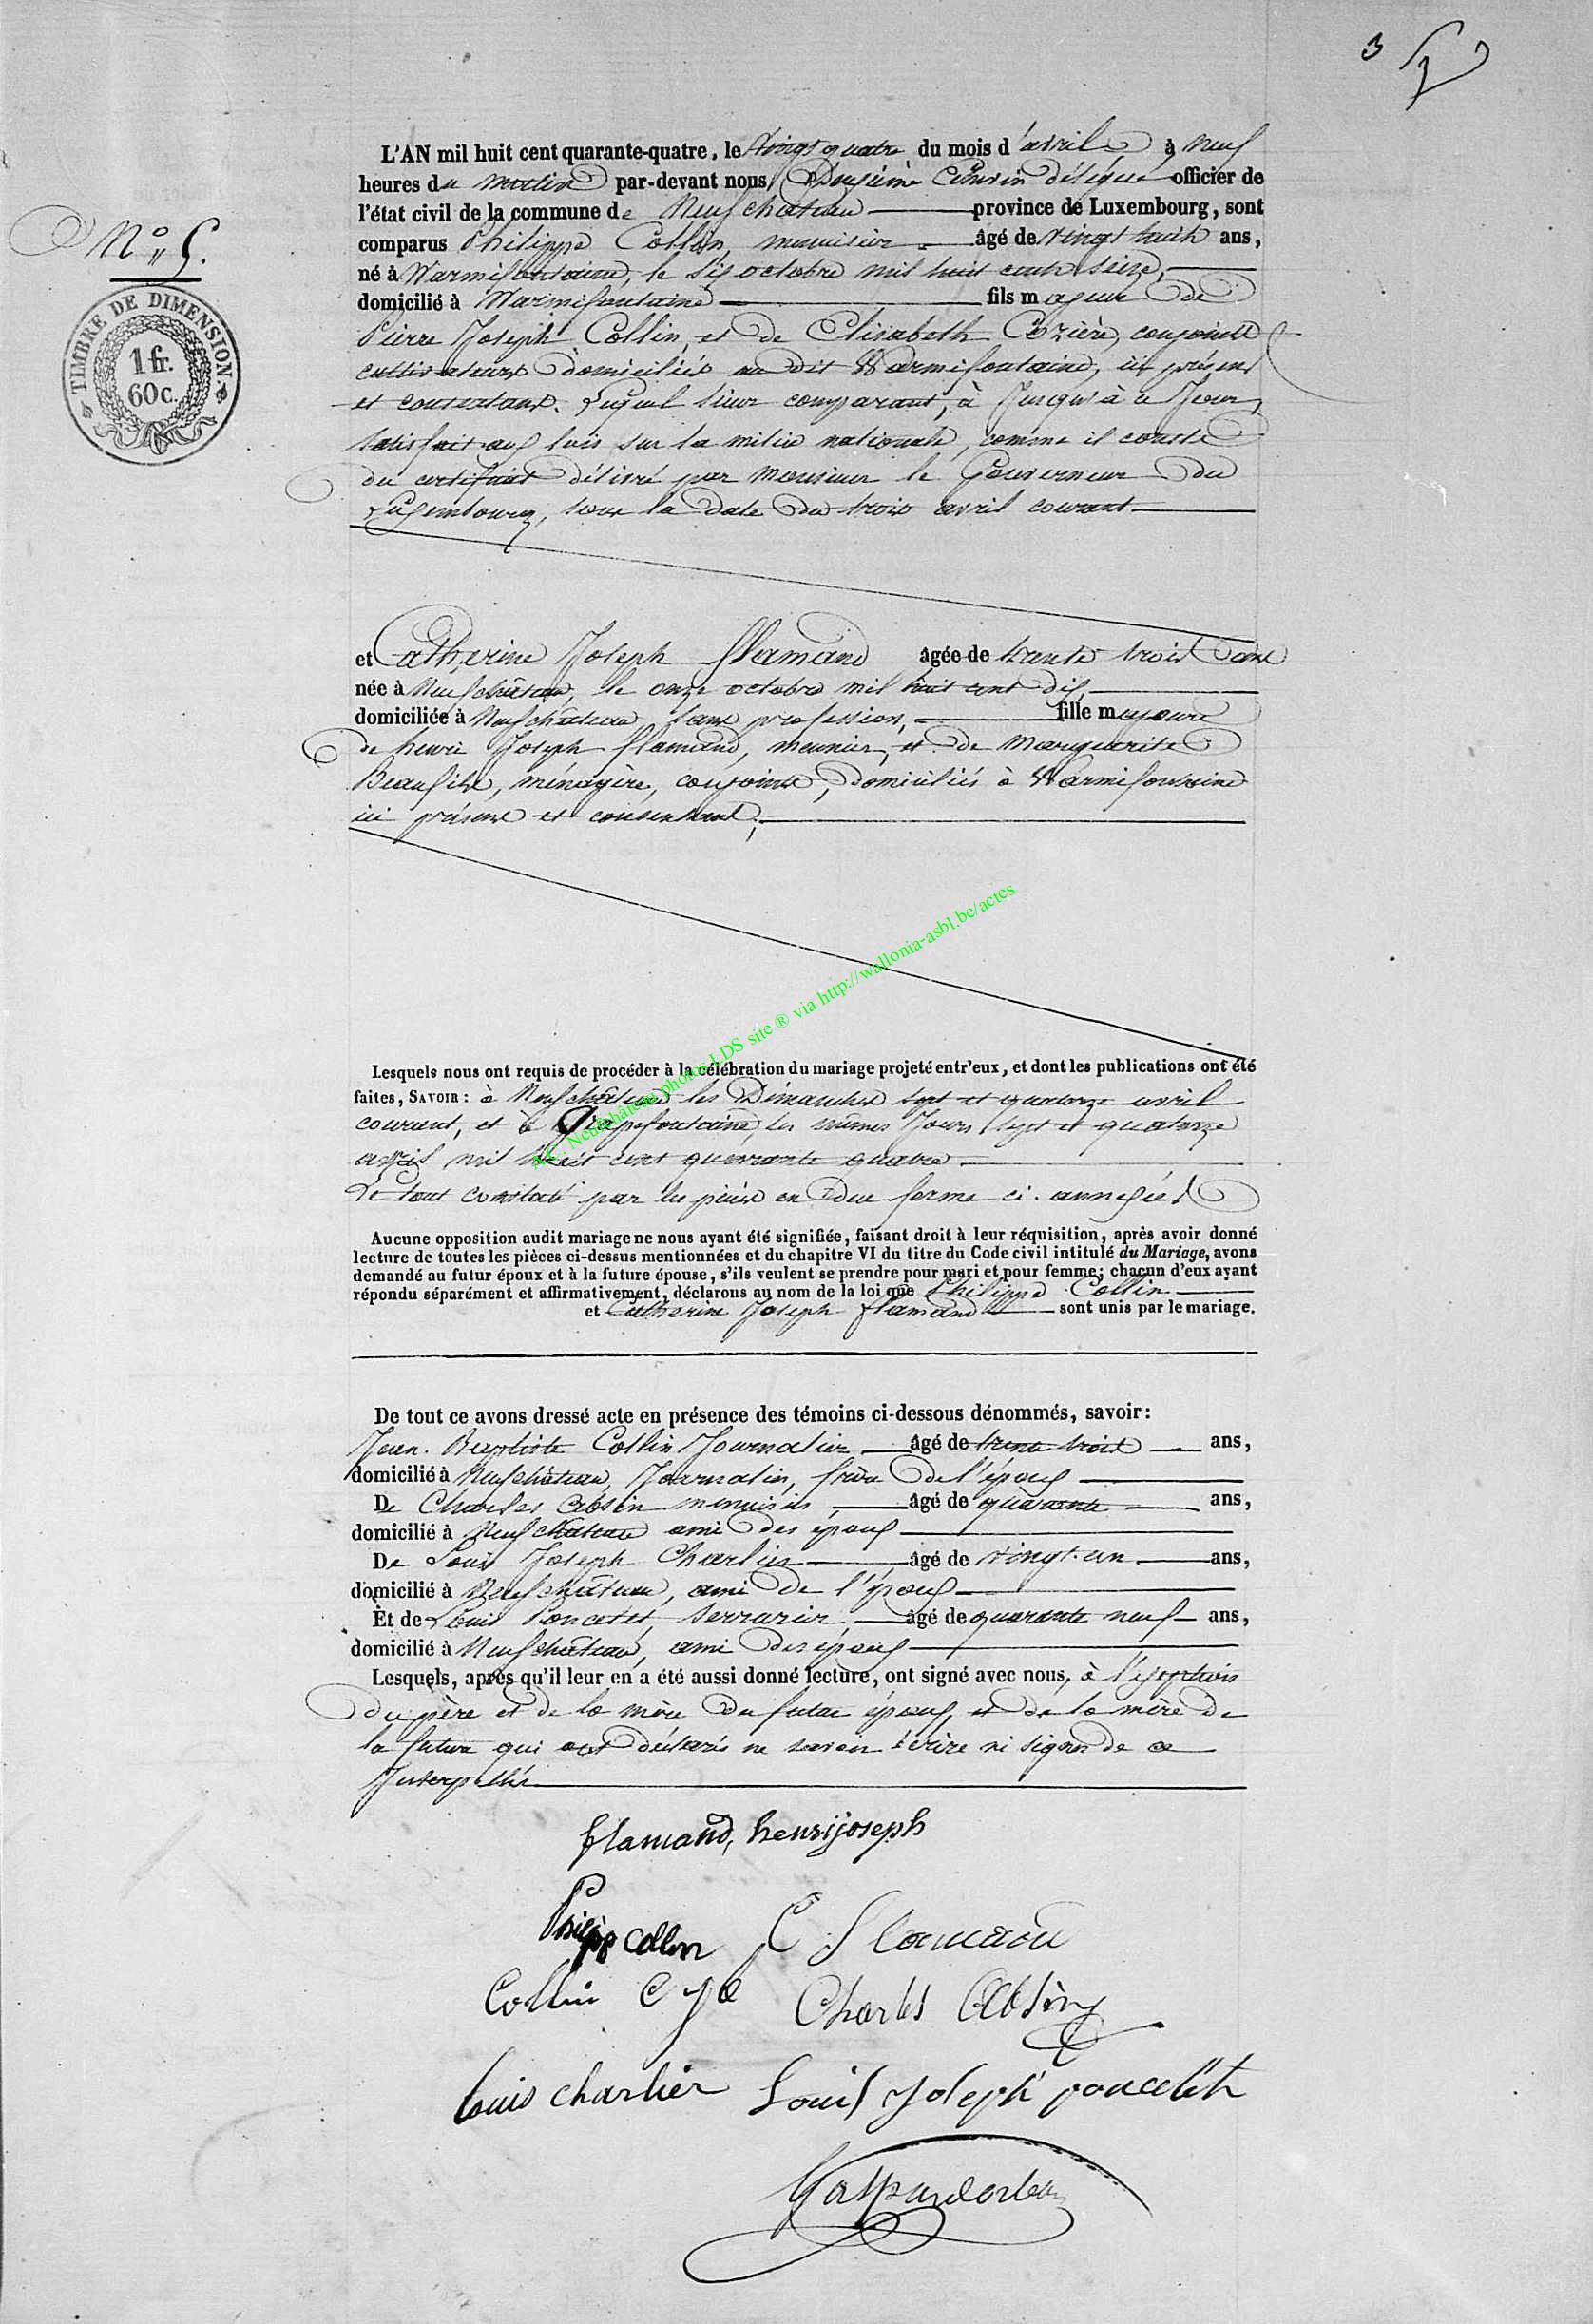 3
N° 5.
TIMBRE DE DIMENSION.
1 fr.
60 c.
L'AN mil huit cent quarante-quatre, le vingt quatre du mois d'avril à neuf
heures du matin par-devant nous, Deuxième Echevin délégué officier de
l'état civil de la commune de Neufchateau province de Luxembourg, sont
comparus Philippe Collin, menuisier âgé de vingt huit ans,
né à Warmifontaine, le six octobre mil huit cent seize,
domicilié à Warmifontaine fils majeur de
Pierre Joseph Collin, et de Elisabeth Cozière, conjoints
cultivateurs domiciliés au dit Warmifontaine, ici présens
et consentans. Lequel sieur comparant, à jusqu'à ce jour,
satisfait aux lois sur la milice nationale, comme il conste
du certificat délivré par Monsieur le Gouverneur du
Luxembourg, sous la date du trois avril courant
et Catherine Joseph flamand agée de trente trois ans
née à Neufchâteau, le onze octobre mil huit cent dix,
domiciliée à Neufchâteau sans profession, fille majeure
de henri Joseph flamand, meunier, et de Marguerite
Beaufils, ménagère, conjoints, domiciliés à Warmifontaine
ici présens et consentant;
Lesquels nous ont requis de procéder à la célébration du mariage projeté entr'eux, et dont les publications ont été
faites, SAVOIR: à Neufchâteau les Dimanches sept et quatorze avril
courant, et à Grapefontaine, les mêmes jours sept et quatorze
avril mil huit cent quarante quatre.
Le tout constaté par les pièces en due forme ci-annexées
Aucune opposition audit mariage ne nous ayant été signifiée, faisant droit à leur réquisition, après avoir donné
lecture de toutes les pièces ci-dessus mentionnées et du chapitre VI du titre du Code civil intitulé du Mariage, avons
demandé au futur époux et à la future épouse, s'ils veulent se prendre pour mari et pour femme; chacun d'eux ayant
répondu séparément et affirmativement, déclarons au nom de la loi que Philippe Collin
et Catherine Joseph flamand sont unis par le mariage.
De tout ce avons dressé acte en présence des témoins ci-dessous dénommés, savoir:
Jean-Baptiste Collin Journalier âgé de trente trois ans,
domicilié à Neufchâteau, Journalier, frère de l'époux
De Charles Absin menuisier, âgé de quarante ans,
domicilié à Neufchateau ami des époux
De Louis Joseph Charlier âgé de vingt-un ans,
domicilié à Neufchâteau, ami de l'époux
Et de Louis Poncelet, serrurier, âgé de quarante neuf ans,
domicilié à Neufchâteau, ami des époux
Lesquels, après qu'il leur en a été aussi donné lecture, ont signé avec nous, à l'exeption
du père et de la mère du futur époux, et de la mère de
la future qui ont déclarés ne savoir écrire ni signer de ce
Interpellés
flamand, henrijoseph
Philipp Collin C J flamand
Collin Charles Absin
Louis charlier Louis Joseph poncelet
N.: Neufchâteau photos LDS site ® via http://wallonia-asbl.be/actes